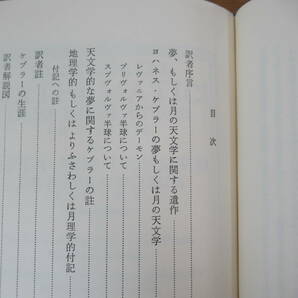 目次
訳者序言
夢、もしくは月の天文学に関する遺作
ヨハネス・ケプラーの夢もしくは月の天文学
レヴァニアからのデーモン
プリヴォルヴァ半球について
スブヴォルヴァ半球について
天文学的な夢に関するケプラーの註
地理学的もしくはよりふさわしくは月理学的付記
付記への註
訳者註
ケプラーの生涯
訳者解説図